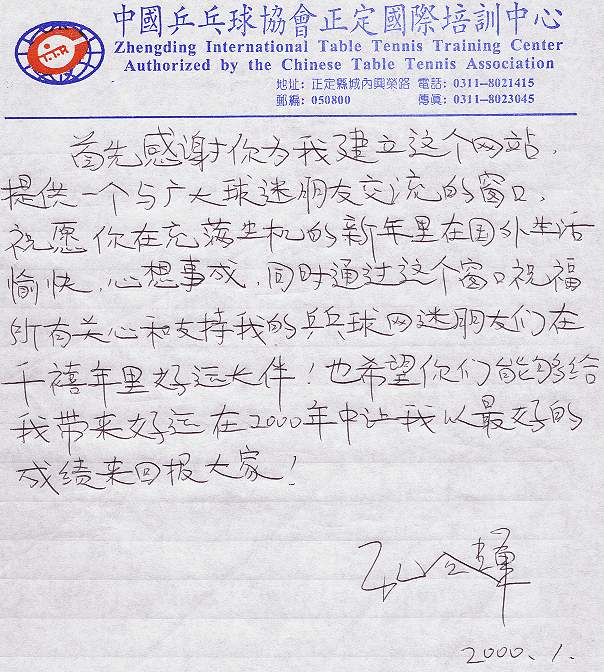 中國乒乓球協會正定國際培訓中心
Zhengding International Table Tennis Training Center
Authorized by the Chinese Table Tennis Association
地址: 正定縣城內興榮路 電話: 0311—8021415
郵編: 050800 傳真: 0311—8023045
首先感谢你为我建立这个网站,
提供一个与广大球迷朋友交流的窗口,
祝愿你在充满生机的新年里在国外生活
愉快,心想事成,同时通过这个窗口祝福
所有关心和支持我的乒球网迷朋友们在
千禧年里好运大伴!也希望你们能够给
我带来好运在2000年中让我以最好的
成绩来回报大家!
2000.1.